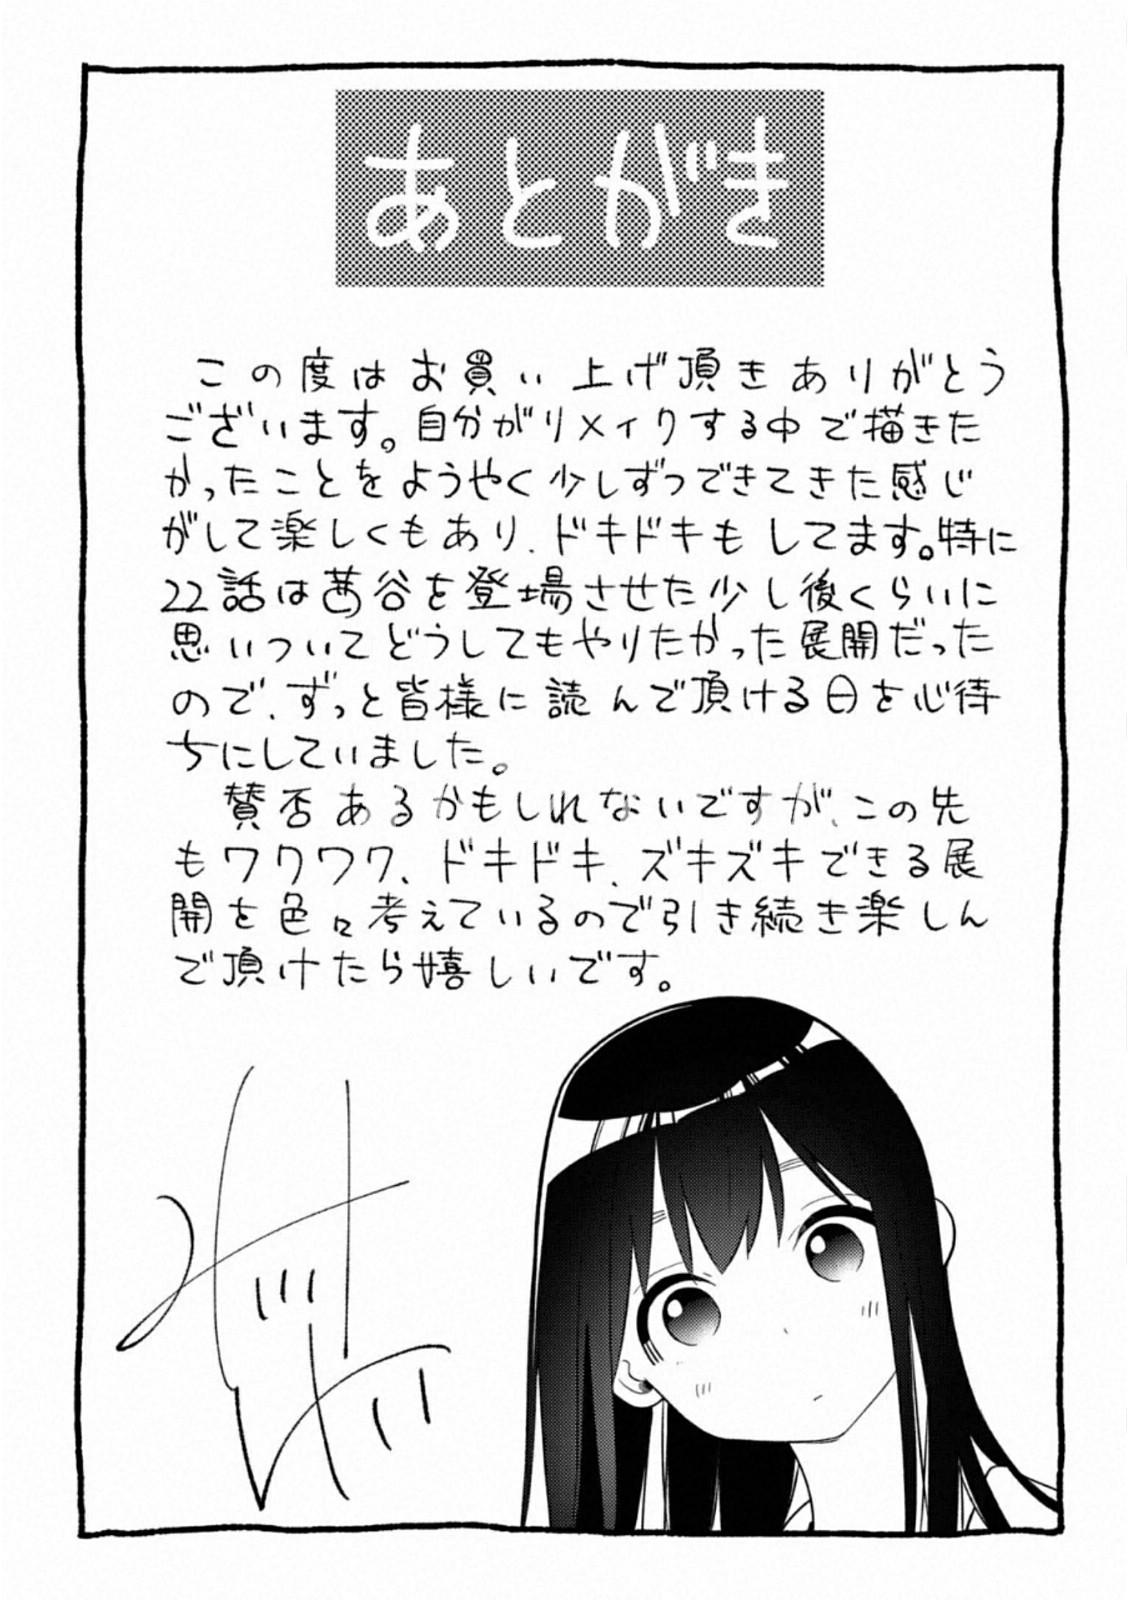 あとがき
この度はお買い上げ頂きありがとう
ございます。自分がリメイクする中で描きた
かったことをようやく少しずつできてきた感じ
がして楽しくもあり、ドキドキもしてます。特に
22話は茜谷を登場させた少し後くらいに
思いついてどうしてもやりたかった展開だった
ので、ずっと皆様に読んで頂ける日を心待
ちにしていました。
賛否あるかもしれないですが、この先
もワクワク、ドキドキ、ズキズキできる展
開を色々考えているので引き続き楽しん
で頂けたら嬉しいです。